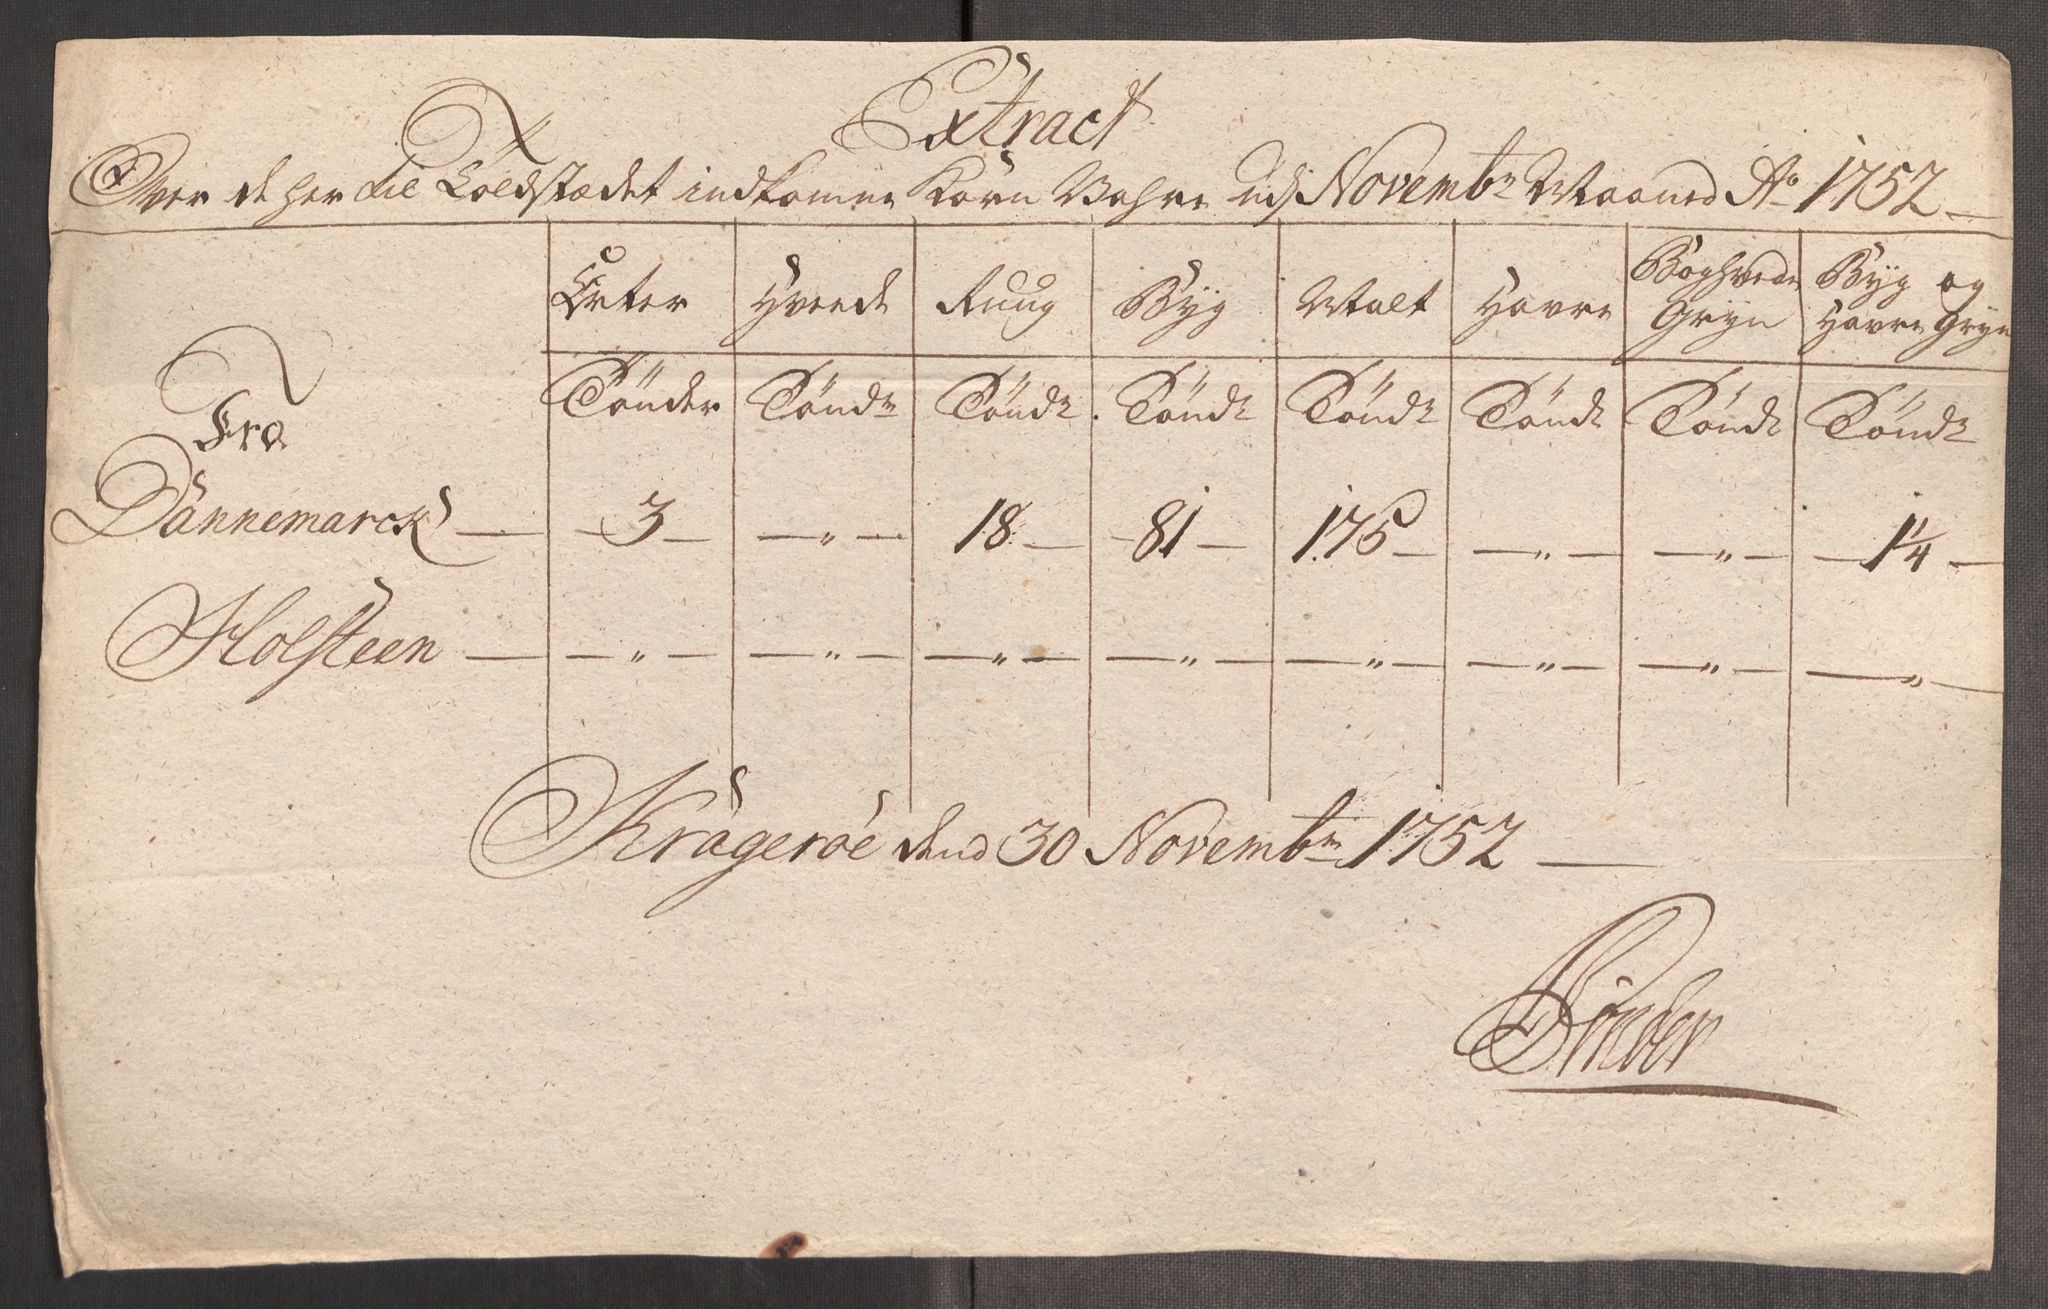 Extract
Over de her til Toldstædet indkomne Korn Vahre udj Novembr Maaned Ao 1752
Erter Hveede Ruug Byg Malt Havre Boghvede Gryn Byg og Havre Gryn
Fra Tönder Töndr Töndr Töndr Töndr Tönd Tönd Töndr
Dannemarck — 3 — — " — 18 — 81 — 175 — — " — — " — — 1¼ —
Holsteen — — " — — " — — " — — " — — " — — " — — " — — " —
Kragerøe dend 30 Novembr 1752